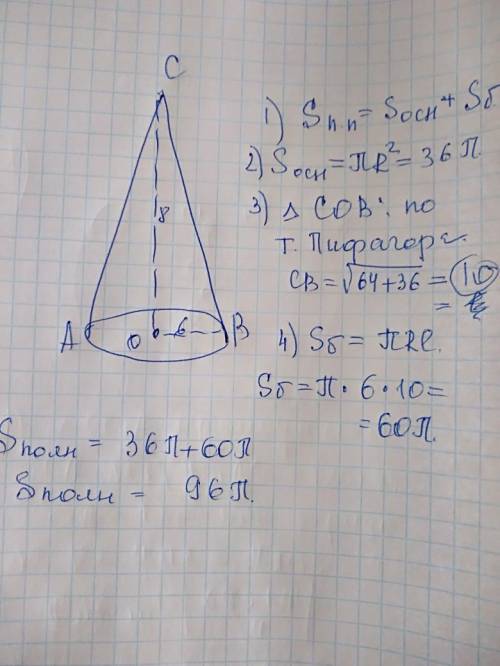 C
8
A
O
6
B
1) Sп.п = Sосн + Sб.
2) Sосн = ПR² = 36П.
3) △ COB: по
т. Пифагора.
CB = √64+36 = 10
=
4) Sб = ПRl.
Sб = П · 6 · 10 =
= 60П.
Sполн = 36П+60П
Sполн = 96П.